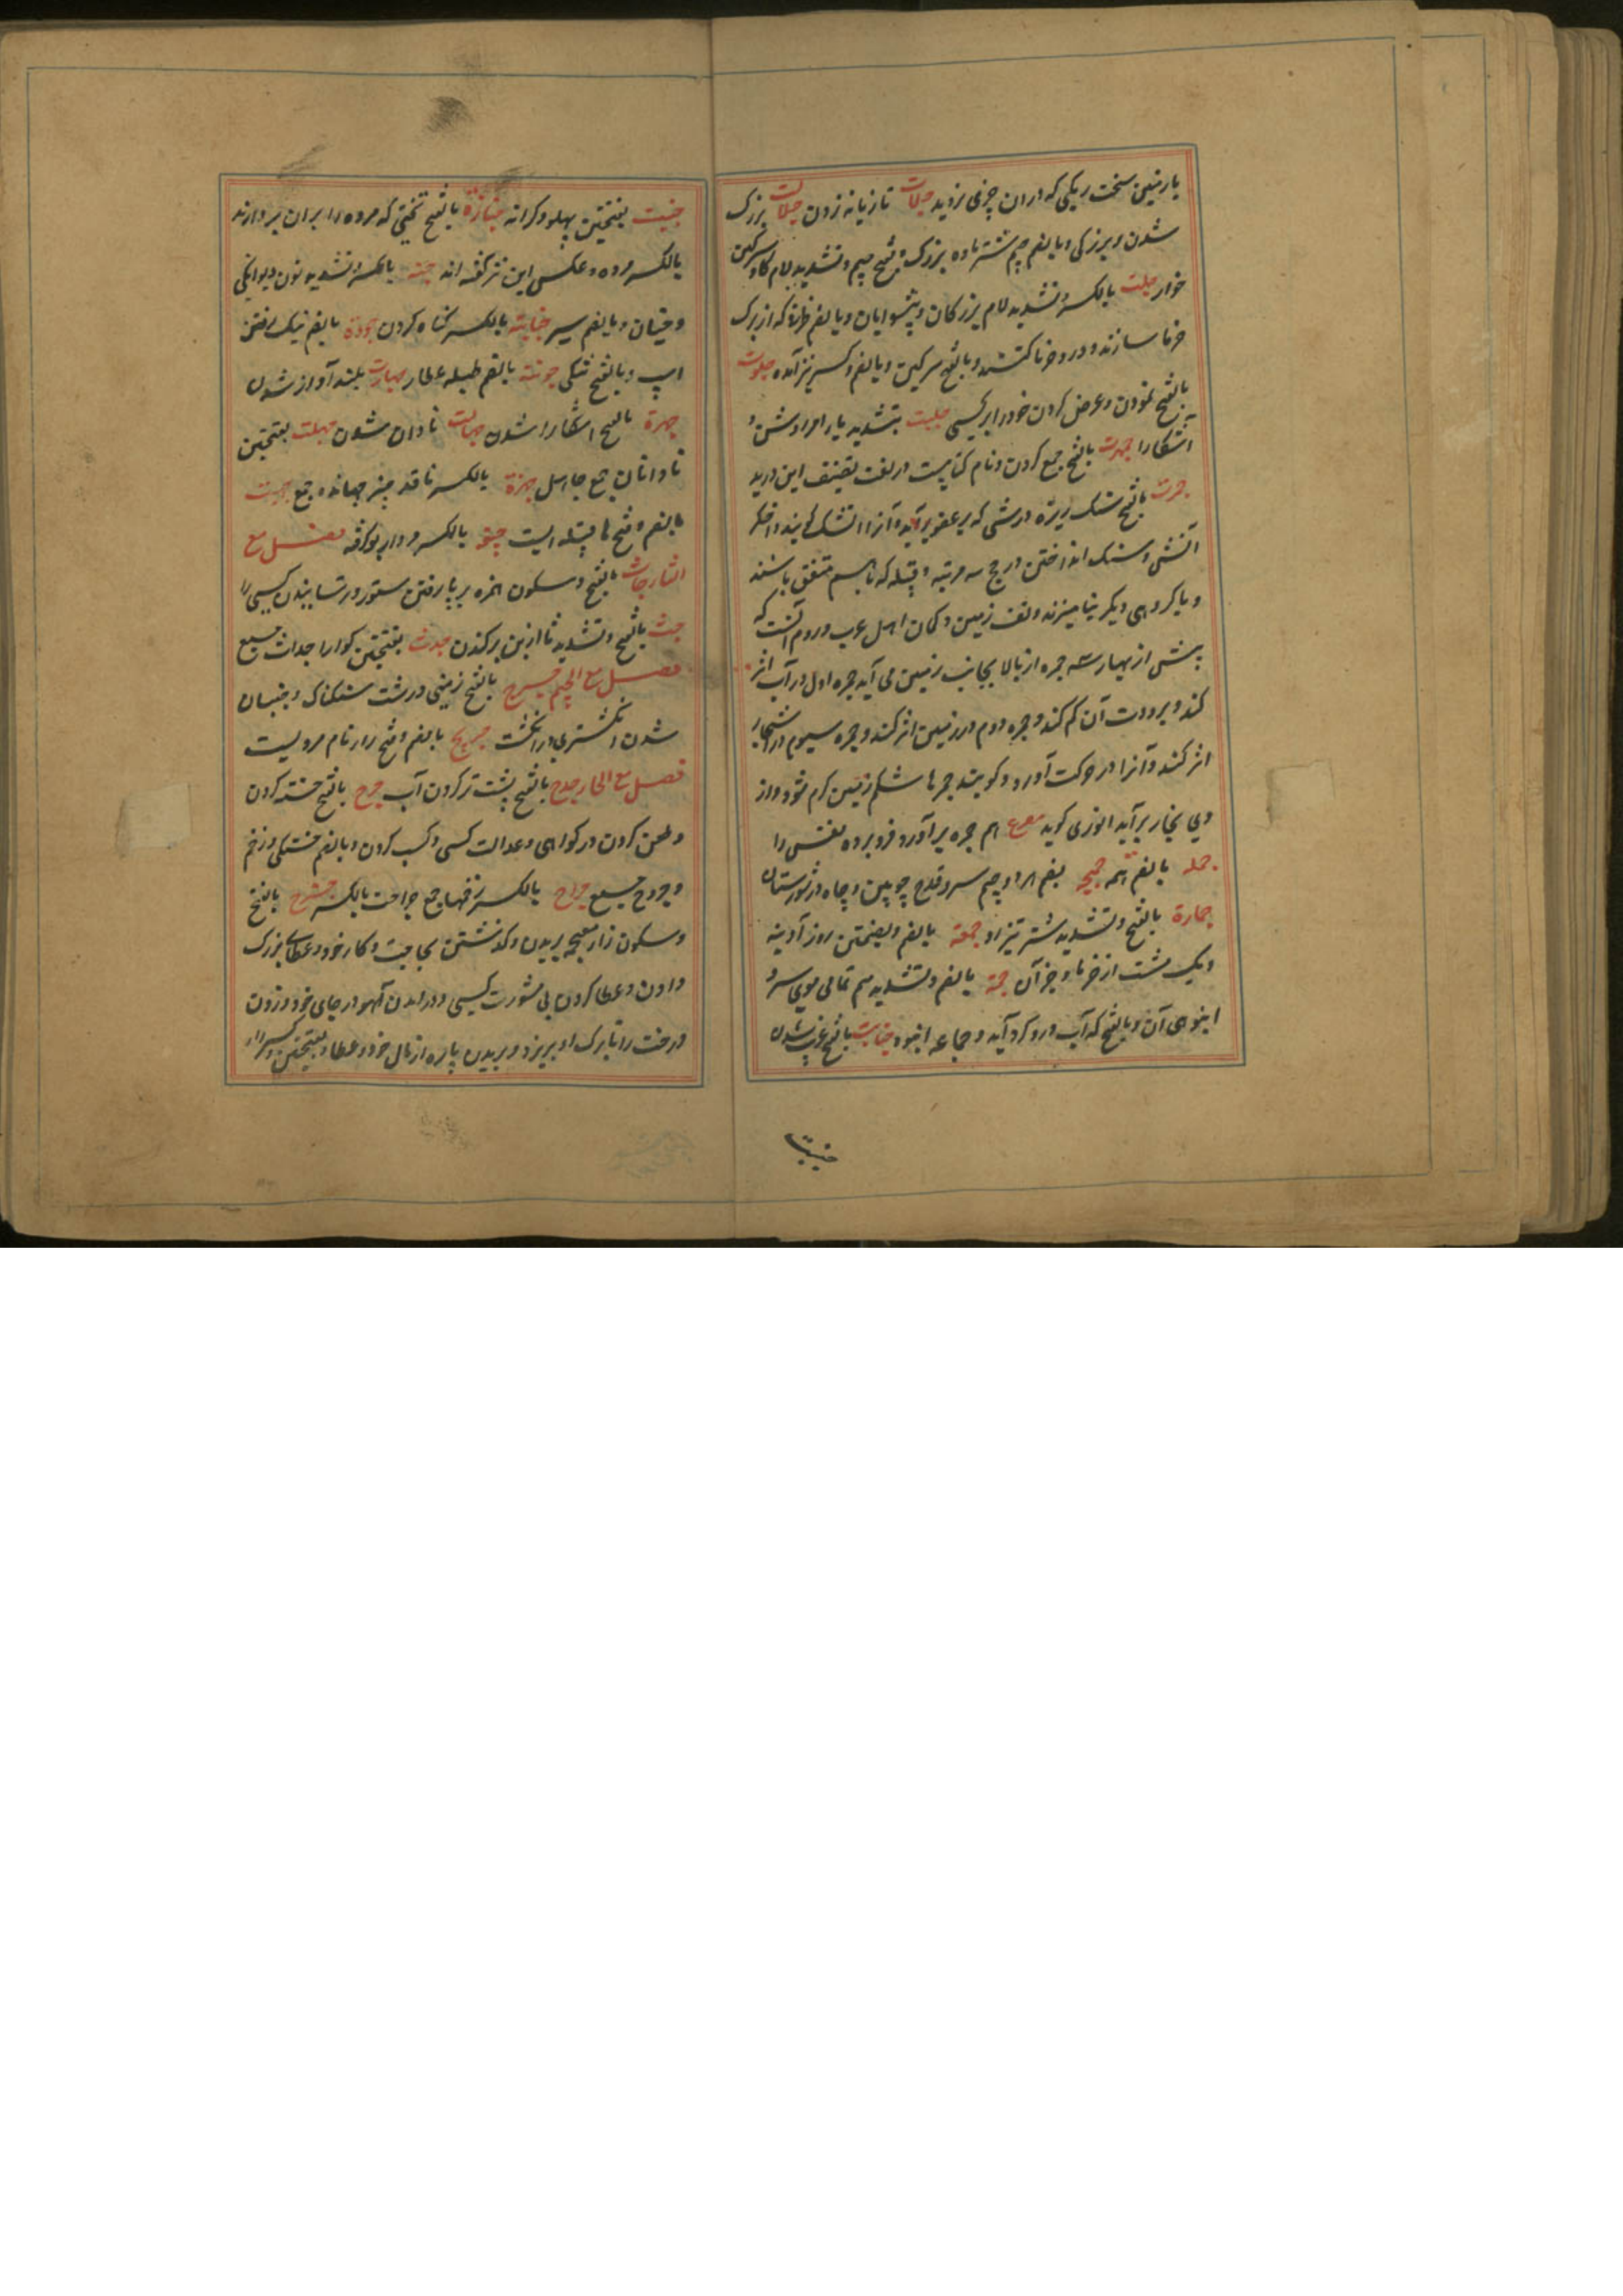 یا زمین سخت ریکی که دران چیزی نروید جلات تازیانه زدن جلالت بزرک
شدن و بزرکی و بالضم جیم شتر ماده بزرک و فتح جیم و تشدید لام کاو سرکین
خوار جلت بالکسر و تشدید لام بزرکان و پیشوایان و بالضم ظرفی که از برک
خرما سازند و درو خرما کنند و بالفتح سرکین و بالضم و کسر نیز آمده جلوت
بالفتح نمودن و عرض کردن خود را بر کسی جلیت بتشدید یا امر روشن و
آشکارا جمهرت بالفتح جمع کردن و نام کتابیست در لغت تصنیف ابن درید
جمرت بالفتح سنک ریزه و رشی که بر عضو برآید و آنرا آتشک کویند و اخکر
آتش و سنک انداختن در حج سه مرتبه و قبیله که باهم متفق باشند
و با کروهی دیکر نیامیزند و تف زمین و کمان اهل عرب و روم آنست که
پیش از بهار سه جمره از بالا بجانب زمین می آید جمره اول در آب اثر
کند و برودت آن کم کند و جمره دوم در زمین اثر کند و جمره سیوم در اشجار
اثر کند و آنرا در حرکت آورد و کویند جمرها شکم زمین کرم شود و از
وی بخار برآید انوری کوید مصرع هم جمره برآورد فرو برده نفس را
جمله بالضم همه جمجمه بضم هر دو جیم سر و قدح چوبین و چاه در شورستان
جمازة بالفتح و تشدید شتر تیز رو جمعه بالضم و بضمتین روز آدینه
و یک مشت از خرما و جز آن جمه بالضم و تشدید میم تمامی موی سر و
انبوهی آن و بالفتح که آب درو کرد آید و جماعه انبوه جنابت بالفتح غریب شدن
جنبت
جنبت بفتحتین پهلو و کرانه جنازة بالفتح تختی که مرده را بران بردارند
بالکسر مرده و عکس این نیز کفته اند جنه بالکسر و تشدید نون دیوانکی
و جنیان و بالضم سپر جنایة بالکسر کناه کردن جودة بالضم نیک رفتن
اسپ و بالفتح نیکی جونة بالضم طبله عطار جهارت بلند آواز شدن
جهرة بالفتح آشکارا شدن جهالت نادان شدن جهلت بفتحتین
نادانان جمع جاهل جهزة بالکسر
بالضم و فتح ها قبیله ایست بالکسر مردار بو کرفته فصل مع
الثا جاث بالفتح و سکون همزه بر پا رفتن ستور و ترسانیدن کسی را
جث بالفتح و تشدید ثا از بن برکندن جدث بفتحتین کور اجداث جمع
فصل مع الجیم جرج بالفتح زمینی درشت سنکناک و جنبان
شدن انکشتری در انکشت جریج بالضم و فتح را نام مردیست
فصل مع الحا جدح بالفتح پشت تر کردن آب جرح بالفتح خسته کردن
و طعن کردن در کواهی و عدالت کسی و کسب کردن و بالضم خستکی و زخم
و جروح جمع جراح بالکسر زخمها جمع جراحت بالکسر جزح بالفتح
و سکون زا معجمه بریدن و کذشتن بحاجت و کار خود و عطای بزرک
دادن و عطا کردن بی مشورت کسی و درامدن آهو در جای خود و زدن
درخت را تا برک او بریزد و بریدن پاره از مال خود و عطا و بفتحتین و کسر